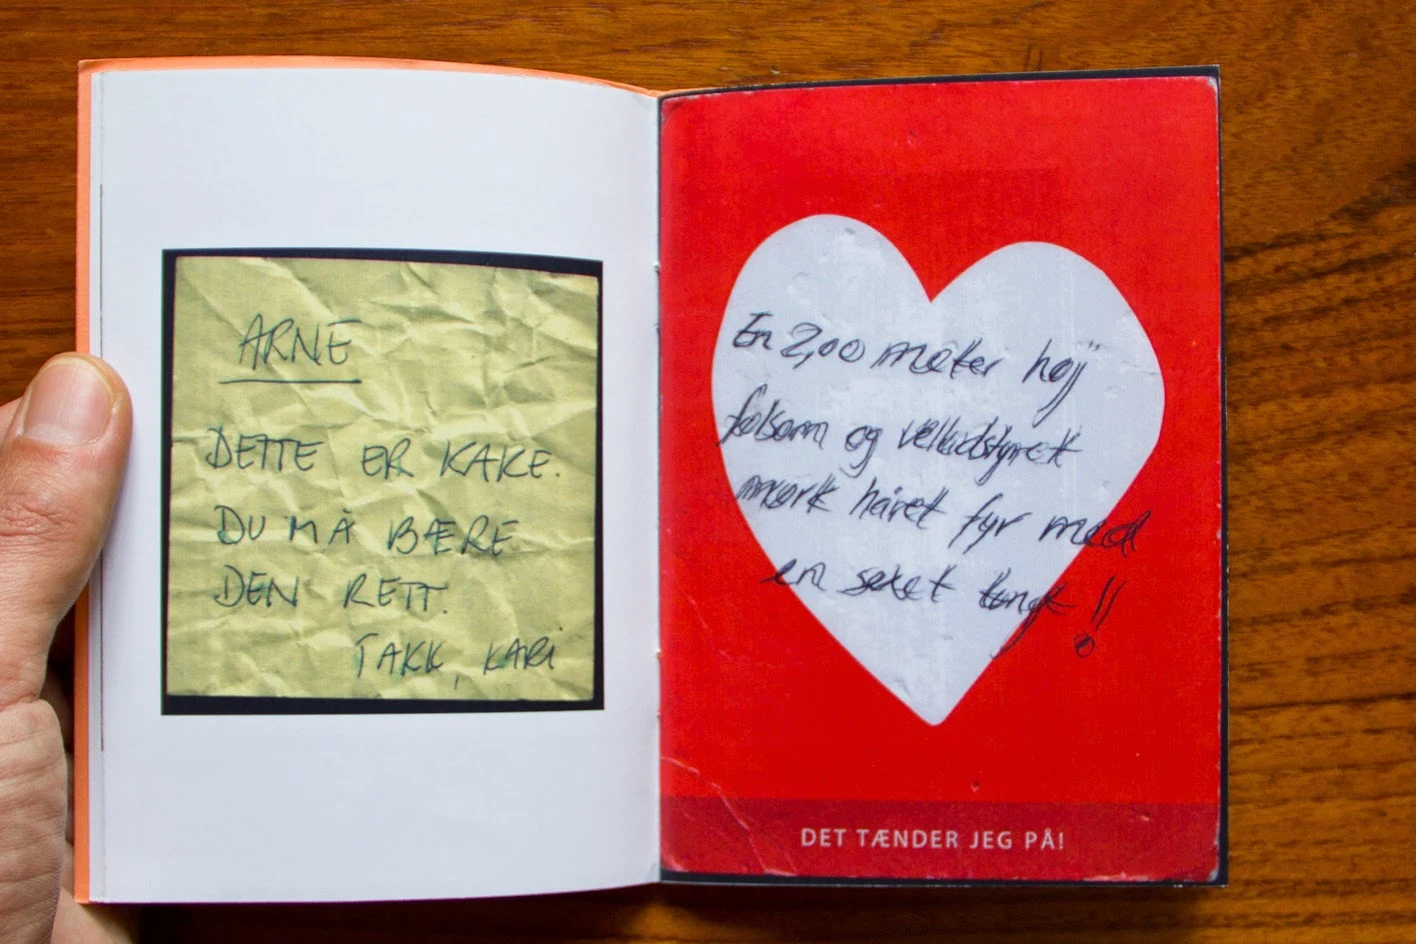 ARNE
DETTE ER KAKE.
DU MÅ BÆRE
DEN RETT.
TAKK, KARI
En 2,00 meter høj
følsom og veludstyret
mørk håret fyr med
en sexet !!
DET TÆNDER JEG PÅ!